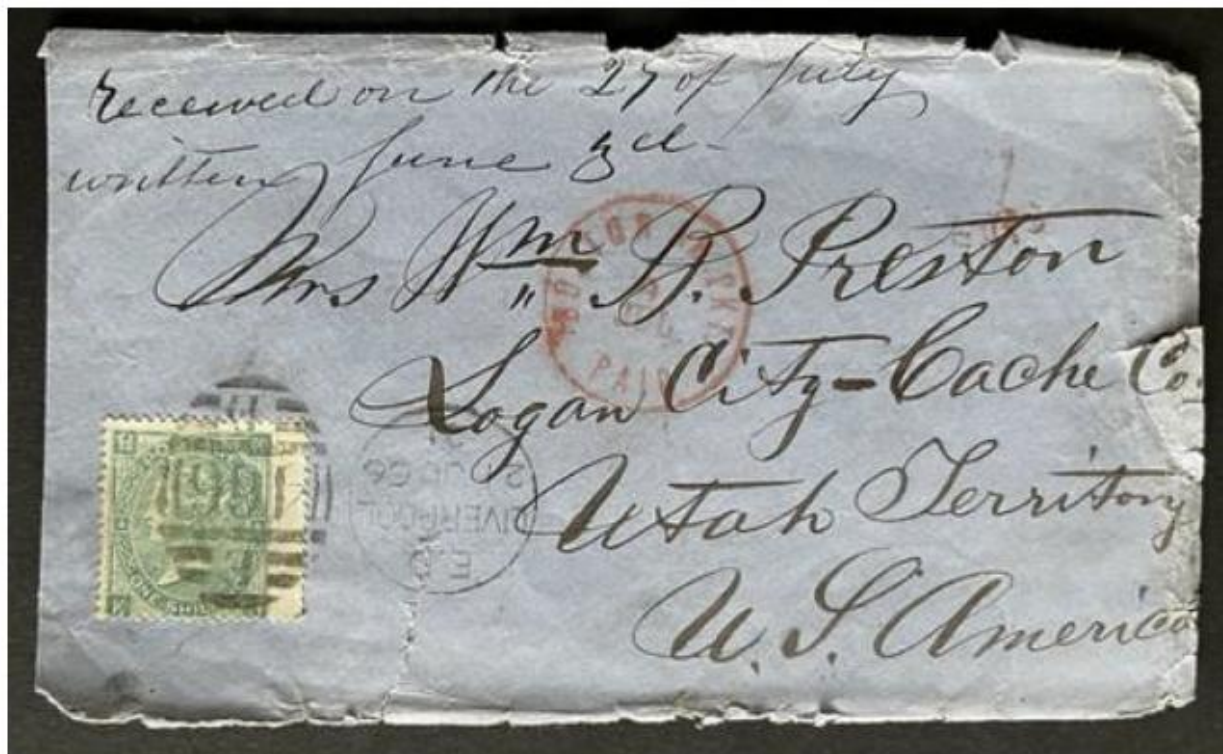 received on the 27 of July
written June 3d-
Mrs Wm B. Preston
Logan City - Cache Co.
Utah Territory
U.S. America
PAID
LIVERPOOL
JU 66